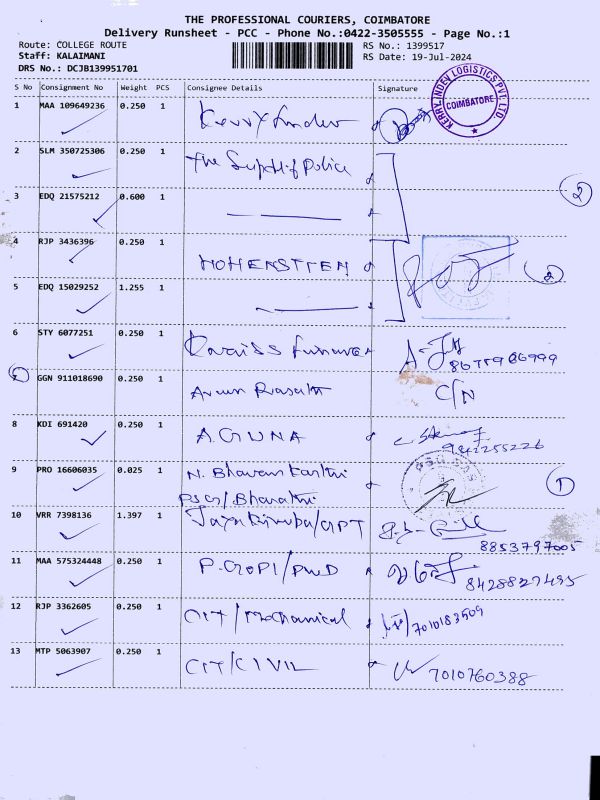 THE PROFESSIONAL COURIERS, COIMBATORE
Delivery Runsheet - PCC - Phone No.:0422-3505555 - Page No.:1
Route: COLLEGE ROUTE RS No.: 1399517
Staff: KALAIMANI RS Date: 19-Jul-2024
DRS No.: DCJB139951701
KERRY INDEV LOGISTICS PVT. LTD.
COIMBATORE
S No Consignment No Weight PCS Consignee Details Signature
1 MAA 109649236 0.250 1 Kerry Indev
2 SLM 350725306 0.250 1 The Suptd of Police
3 EDQ 21575212 0.600 1
2
4 RJP 3436396 0.250 1 HOHENSTTEN
2
5 EDQ 15029252 1.255 1
6 STY 6077251 0.250 1
GGN 911018690 0.250 1 Arun Prasath C/N
8 KDI 691420 0.250 1 A.GUNA
9 PRO 16606035 0.025 1 N. Bhavani
PSG/Bharathi
1
10 VRR 7398136 1.397 1
8853797005
11 MAA 575324448 0.250 1 P.GOPI/PWD
8428827495
12 RJP 3362605 0.250 1 CIT/Mechanical 7010183509
13 MTP 5063907 0.250 1 CIT/CIVIL 7010760388